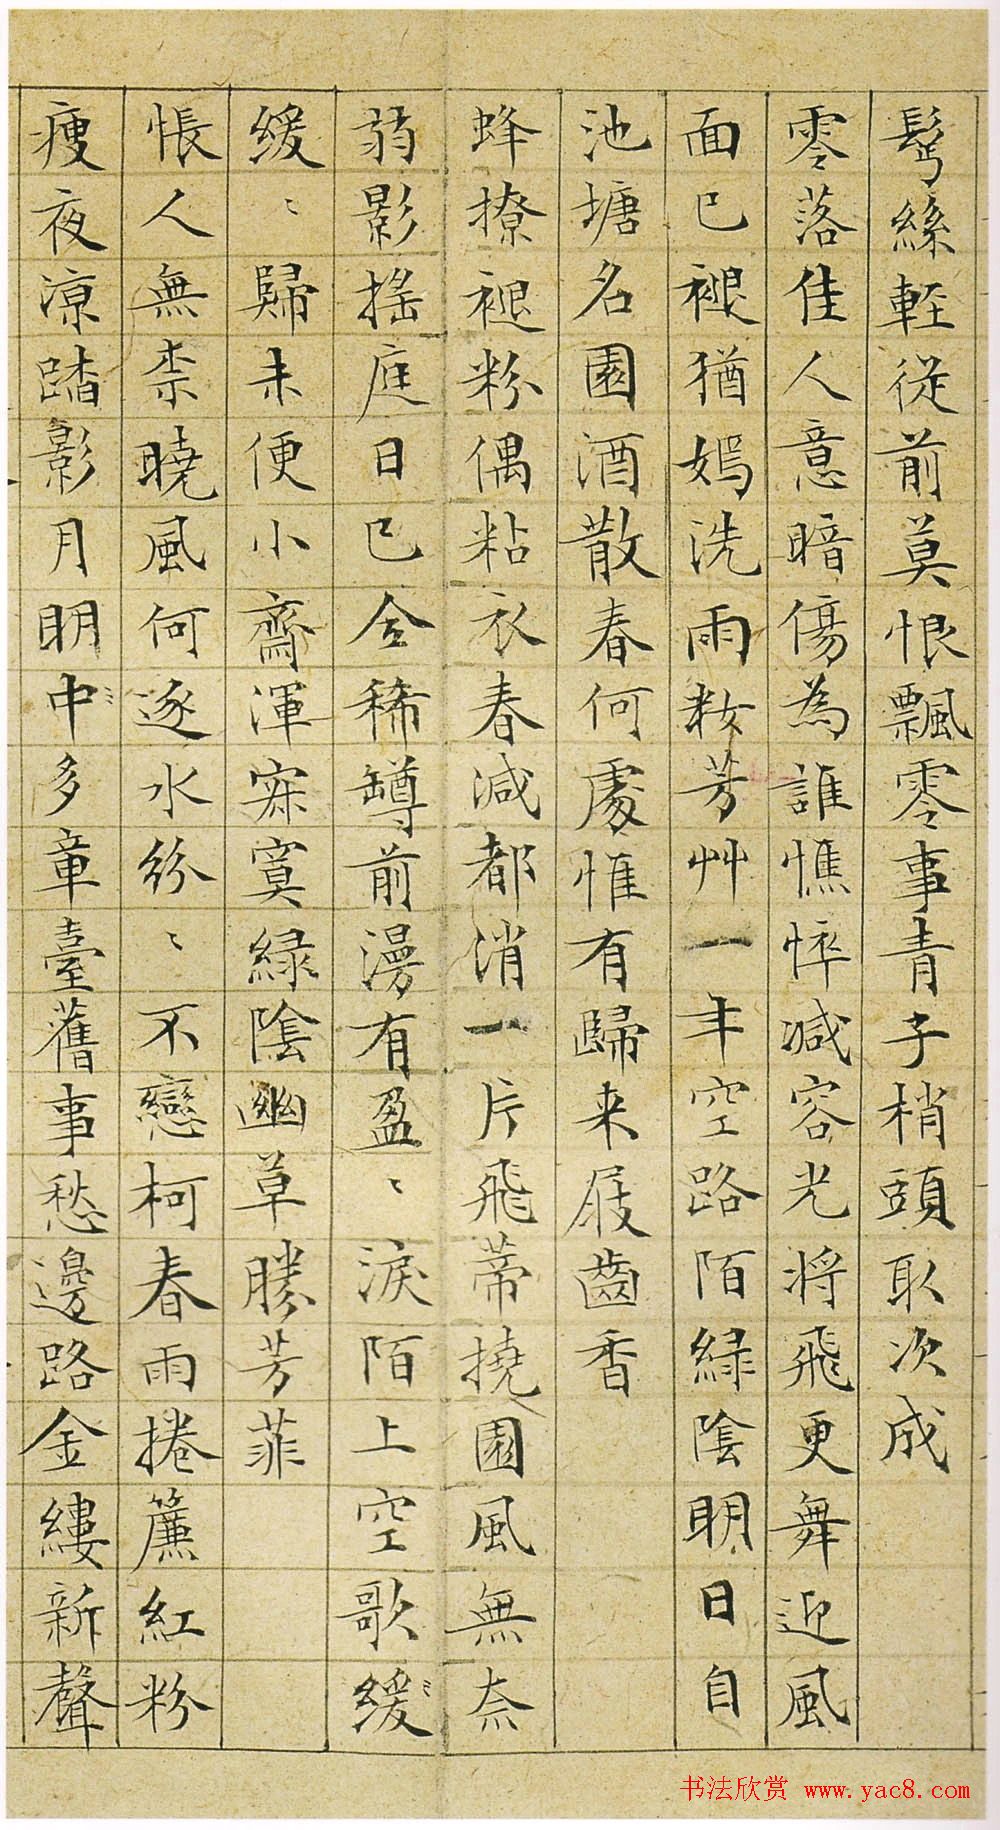 鬢絲輕從前莫恨飄零事青子梢頭取次成
零落佳人意暗傷為誰憔悴減容光將飛更舞迎風
面已褪猶嫣洗雨粧芳艸一年空路陌綠陰明日自
池塘名園酒散春何處惟有歸来屐齒香
蜂撩褪粉偶粘衣春減都消一片飛蒂撓園風無奈
弱影搖庭日已全稀罇前漫有盈〻淚陌上空歌緩〻
緩〻歸未便小齋渾寂寞綠陰幽草勝芳菲
悵人無柰曉風何逐水紛〻不戀柯春雨捲簾紅粉
瘦夜凉踏影月明中〻多章臺舊事愁邊路金縷新聲
书法欣赏 www.yac8.com